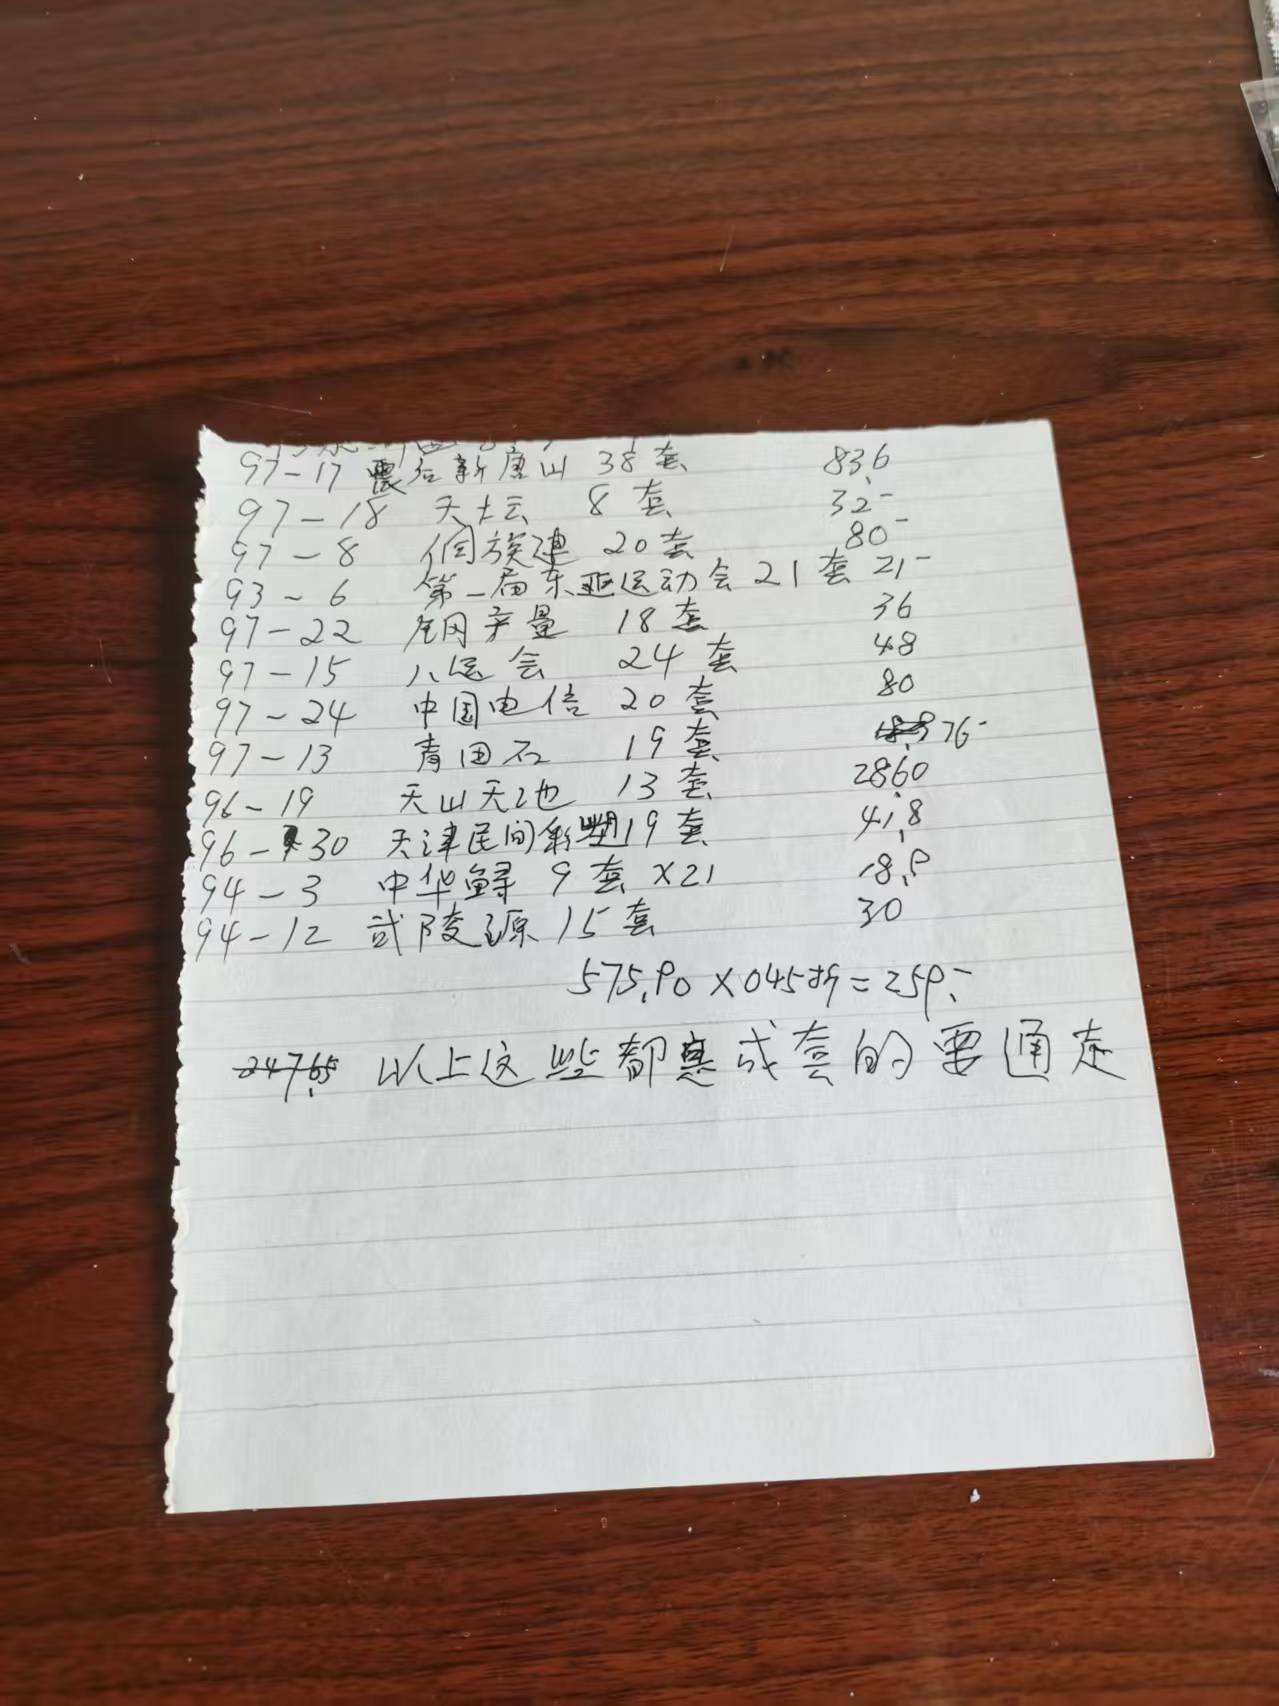 97-17 震后新唐山 38套 83.6
97-18 天坛 8套 32-
97-8 侗族建 20套 80-
93-6 第一届东亚运动会 21套 21-
97-22 钢产量 18套 36
97-15 八运会 24套 48
97-24 中国电信 20套 80
97-13 青田石 19套 76-
96-19 天山天池 13套 28.60
96-30 天津民间彩塑 19套 41.8
94-3 中华鲟 9套 X21 18.9
94-12 武陵源 15套 30
575.90 X 045折 = 259.-
24765 以上这些都是成套的要通走